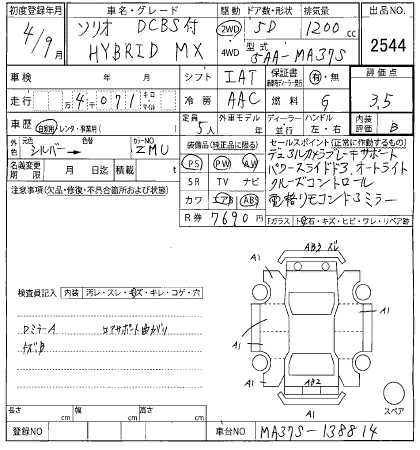 初度登録年月 車名・グレード 駆動 ドア数・形状 排気量 出品NO.
4/9月 ソリオ DCBS付 2WD 5D 1200cc
HYBRID MX 4WD 型式 5AA-MA37S 2544
車検 年 月 シフト IAT 保証書 有・無 評価点
走行 万 4千071 キロ マイル 冷房 AAC 燃料 G 3.5
車歴 自家用・レンタ・事業用( ) 定員 5人 外車モデル 年 ディーラー 並行 ハンドル 左・右 内装評価 B
外色 元色 シルバー→ 色 カラーNO ZMU 装備品(純正品に限る) セールスポイント(正常に作動するもの)
名義変更期限 月 日迄 積載 t PS PW AW デュアルカメラブレーキサポート
注意事項(欠品・修復・不具合箇所および状態) SR TV ナビ パワースライドドア、オートライト
カワ エアB ABS クルーズコントロール
R券 7690円 電格リモコンドアミラー
Fガラス トビ石・キズ・ヒビ・ワレ・リペア跡
ABS ズレ
検査員記入 内装 汚レ・スレ・キズ・キレ・コゲ・穴
A1
A1
A1
A1
Dミラー A ロアサポート曲がり
キズ、B
AB2
A1
スペア
長さ cm 幅 cm 高さ cm
登録NO 車台NO MA37S-138814